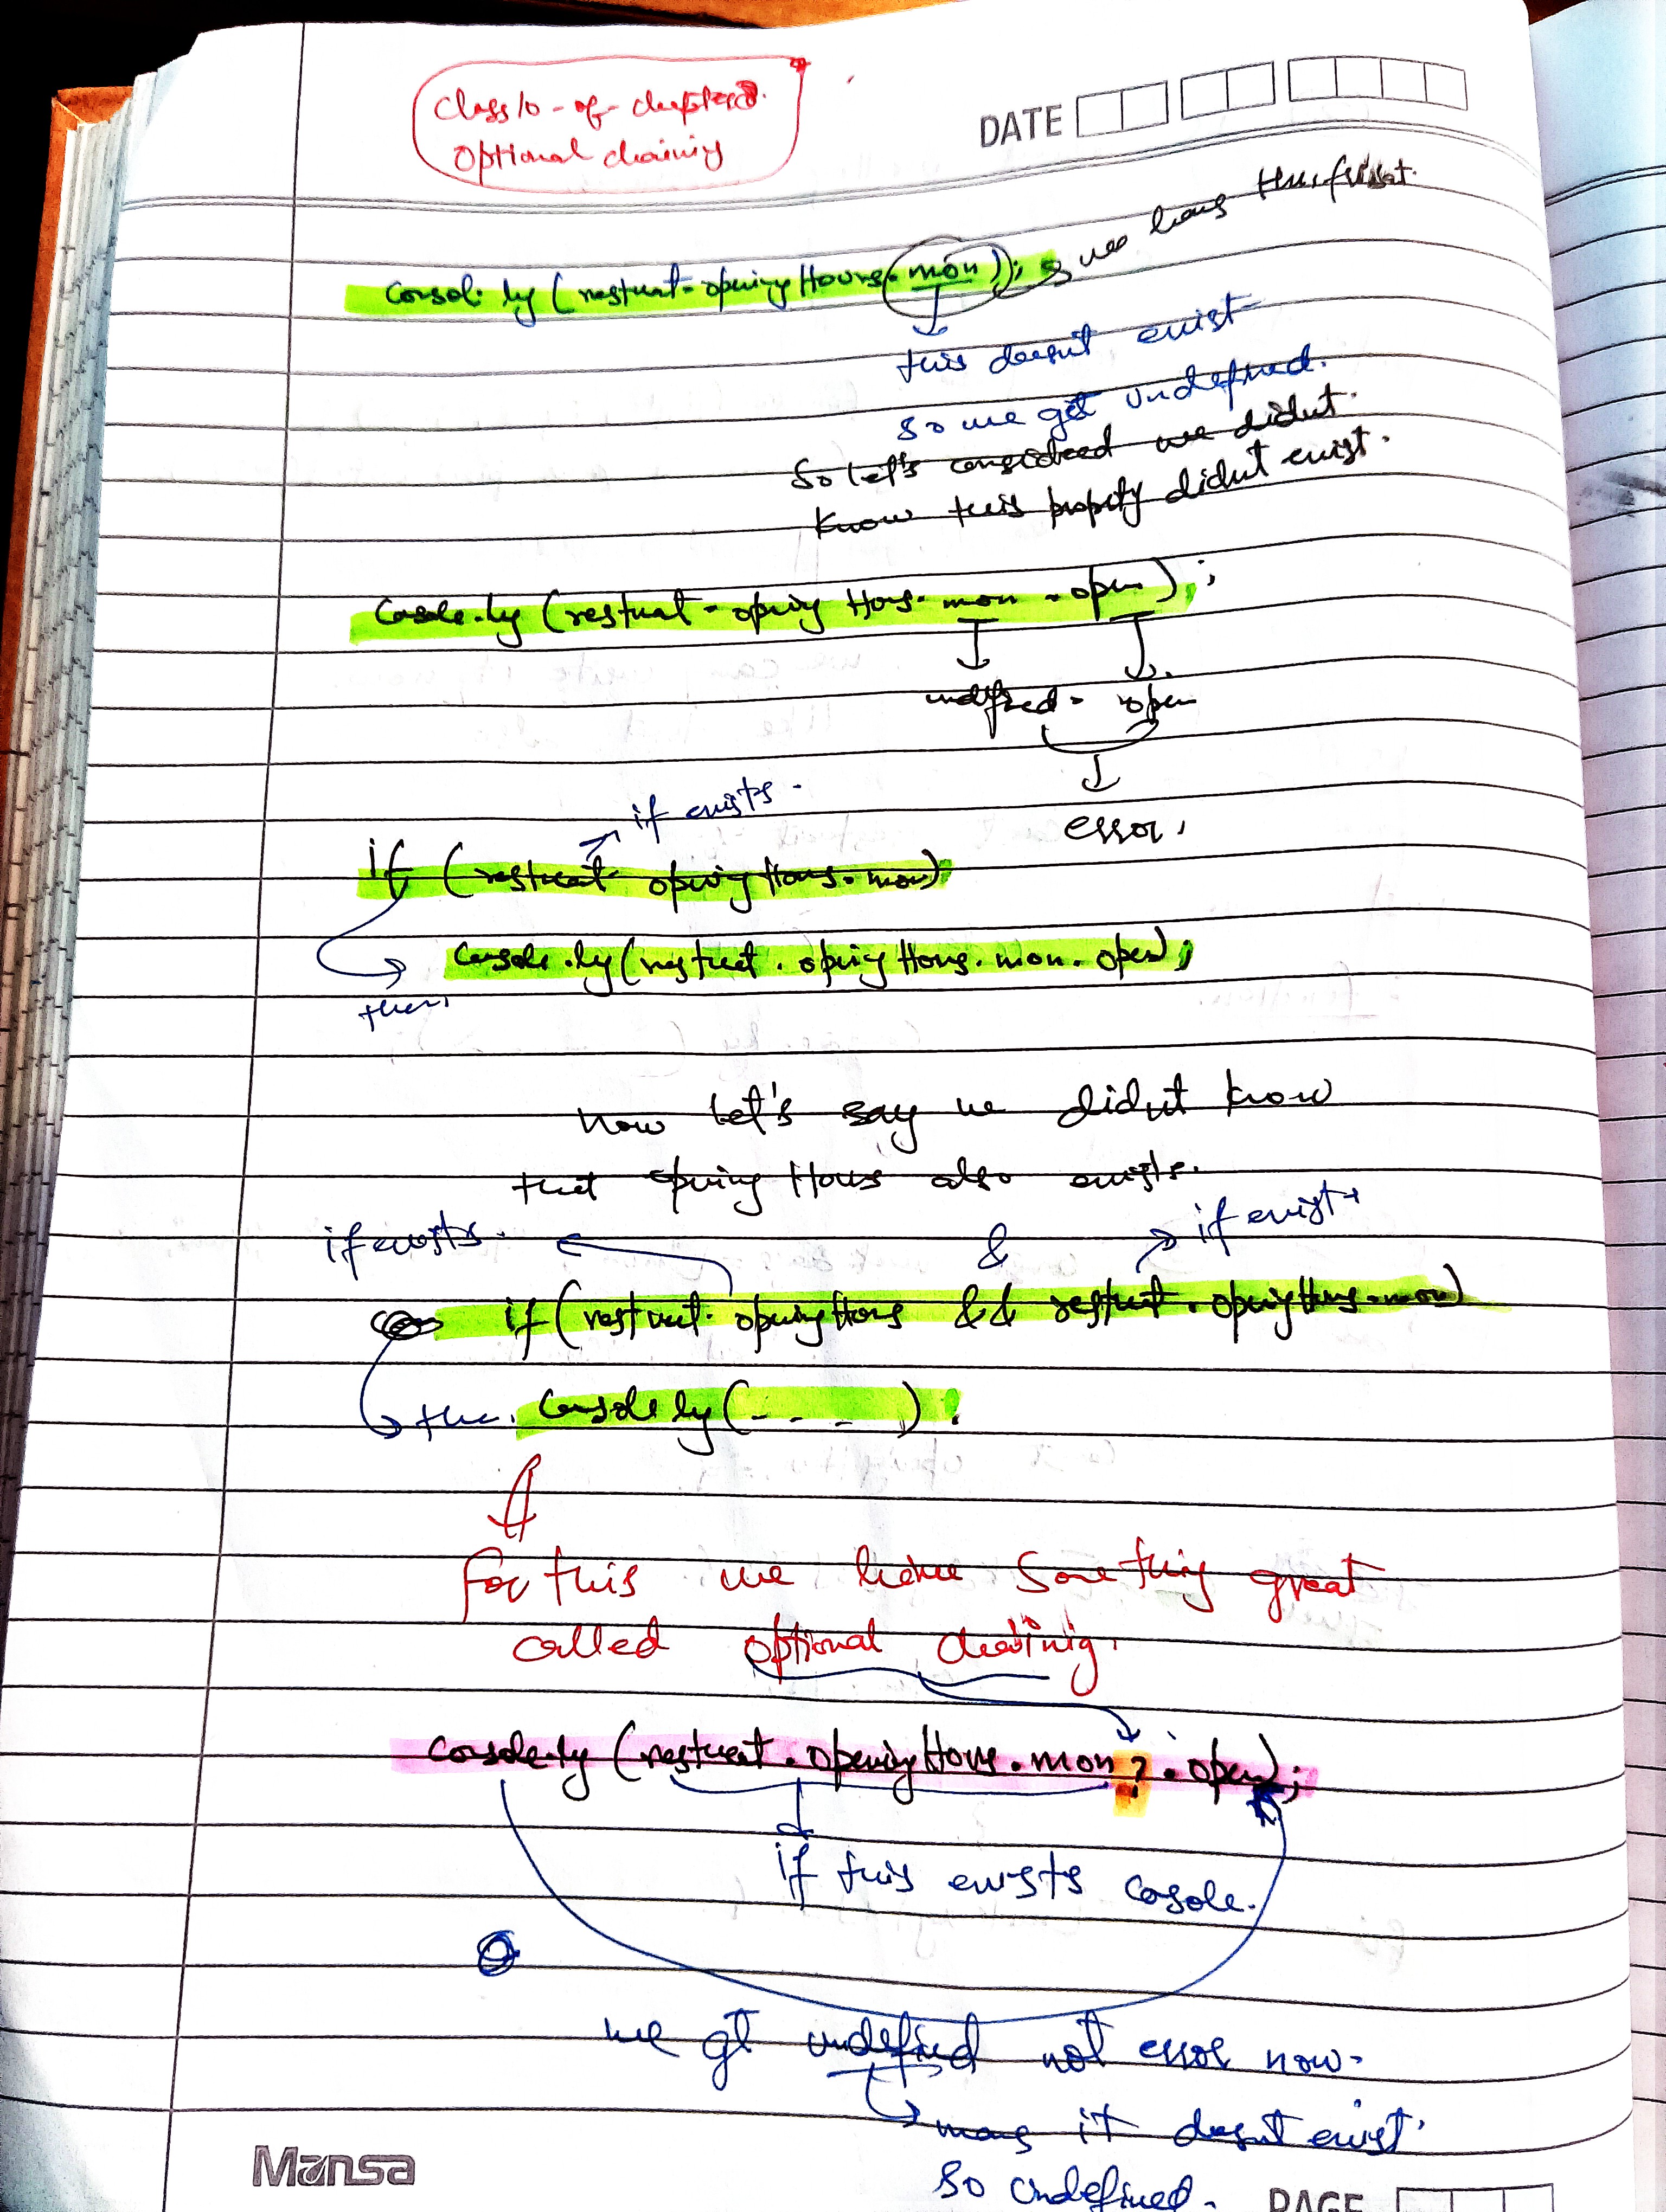 Class 10 - of - chapter
Optional chaining
DATE
Consol. log (restuat. opening Hours. mon);
this doesn't exist
so we get undefined.
So let's considered we didnt.
know this propety didnt exist.
Console.log (restuat. opening Hours. mon . open);
undefined. open
error.
if exists.
if (restuat. opening Hours. mon)
Console.log (restuat. opening Hours. mon. open);
then.
now let's say we didnt know
that opening Hours also exists.
if exists. & if exist
if (restuat. opening Hours && restuat. opening Hours. mon)
then. Console log (- - - ) ;
For this we have something great
called optional chaining.
Console.log (restuat. opening Hours. mon ?. open);
if this exists cosole.
we gt undefined not error now.
means it doesnt exist.
so undefined.
Mansa
PAGE